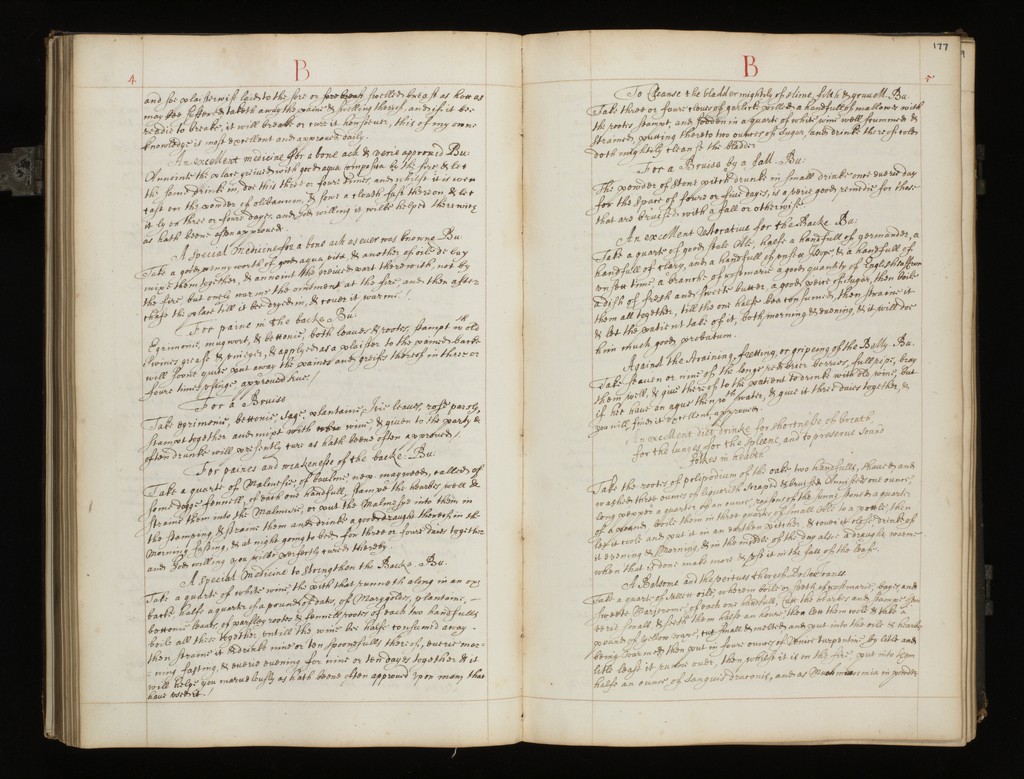 4
B
and soe plaisterwise laid to the sore or sore breast swelled breast as hott as
may bee suffered taketh away the paine & swelling thereof. and if it bee
readie to breake, it will breake or cure it howsoever, this of my owne
knowledge is most excellent and approved daily.
An excellent medicine for a bone ach & verie approved Bu:
Annointe the place greived with good aqua composita by the fire & let
the same drinke in, doe this three or foure times, and whilst it is wett
cast on the powder of olibanum, & sowe a cloath fast thereon & let
it ly on three or foure dayes, and God willing it wilbe helped therewith
as hath beene often approved.
A speciall medicine for a bone ach as ever was knowne Bu:
Take a penny worth of good aqua vitæ & another of oile de bay
mixe them together, & annoint the greived part therewith, not by
the fire but onely warme the ointment at the fire, and then after
chafe the place till it bee dryed in, & cover it warme!
For paine in the backe Bu:
Egrimonie, mugwort, & bettonie, both leaves & rootes, stampt in old
Swines grease & viniger, & applyed as a plaister to the pained backe
will quite put away the paines and greifes thereof in three or
foure times usinge approved true!
For a Bruise
Take egrimonie, bettonie, sage, plantaine, Ivie leaves, rose parsly,
stampt together and mixt with wine & given to the party &
often drunke will presently cure as hath beene often approved!
For paines and weaknesse of the backe. Bu:
Take a quarte of Malmesie, of new called of
some dogge fennell, of each one handfull, stampe the hearbes well &
straine them into the Malmesie, or put the Malmsye into them in
the stamping & straine them and drinke a good draught thereof in the
Morning fasting, & at night going to bed for three or foure daies together
and God willing you wilbe perfectly cured thereby.
A speciall medicine to strengthen the Backe. Bu:
Take a quarte of white wine, the pith that runneth along in an oxe
backe halfe a quarter of a pound of dates, of Marygoles, plantaine,
bettonie leaves, of parsley rootes & fennell rootes of each two handfulls
boile all these together untill the wine bee halfe consumed away.
then straine it & drinke nine or ten spoonefulls thereof, everie mor-
ning fasting, & everie evening for nine or ten dayes together & it
will helpe you marvelously as hath beene often approved upon many that
have used it!
177
B
5
To Cleanse the bladder mightily of slime, filth & gravell. Bu.
Take three or foure cloves of garlick pilled a handfull of mallowes with
the rootes stampt, and sodden in a quart of white wine well scummed &
strained, putting thereto two ounces of sugar, and drinke thereof it
doth mightily cleanse the bladder.
For a Bruise by a fall. Bu:
The powder of stone pitch drunke in small drinke once everie day
for the space of foure or five daies, is a verie good remedie for those
that are bruised with a fall or otherwise.
An excellent restorative for the Backe Bu:
Take a quart of good stale Ale, halfe a handfull of germander, a
handfull of clary, and a handfull of unsett Isop, & a handfull of
unsett time, a branch of rosemarie a good quantity of English saffron
a dish of fresh and sweete butter, a good peice of sugar, then boile
them all together, till the one halfe bee consumed, then straine it
& let the patient take of it, both morning & evening, & it will doe
him much good probatum.
Against the straining, fretting, or gripeing of the Belly Bu.
Take seaven or nine of the longe red brier berries, full ripe, bray
them well, & give thereof to the patient to drinke with old wine, but
if hee have an ague then with water, & give it three daies together, &
you will finde it excellent, approved.
An excellent diet drinke for shortnesse of breath,
for the lunges for the spleene, and to preserve sound
folkes in health
Take the roots of polipodium of the oake two handfulls, shaved and
washed three ounces of liquorish scraped & bruised Anniseeds one ounce,
long pepper a quarter of an ounce, raisins of the sunne stoned a quarter
of a pound, boile them in three quarts of small Ale to a pottle then
let it coole and put it in an earthen pitcher & cover it close drinke of
it evening & Morning, & in the middle of the day also a draught warme
when that is done make more & use it in the fall of the leafe.
A Balsome and the vertues thereof
Take a quart of sallet oile, wherein boile or seeth of rosemarie, bayes and
sweete Marjerome, of each one handfull, cutt the hearbs and stampe them
verie small & seeth them halfe an houre, then let them coole & take a
pound of yellow waxe, cut small & melted and put into the oile & hearbs
being warmed then put in foure ounces of Venice turpentine by litle and
litle least it runne over, then whilst it is on the fire, put into them
halfe an ounce of Sanguis draconis, and as Much mumia in powder